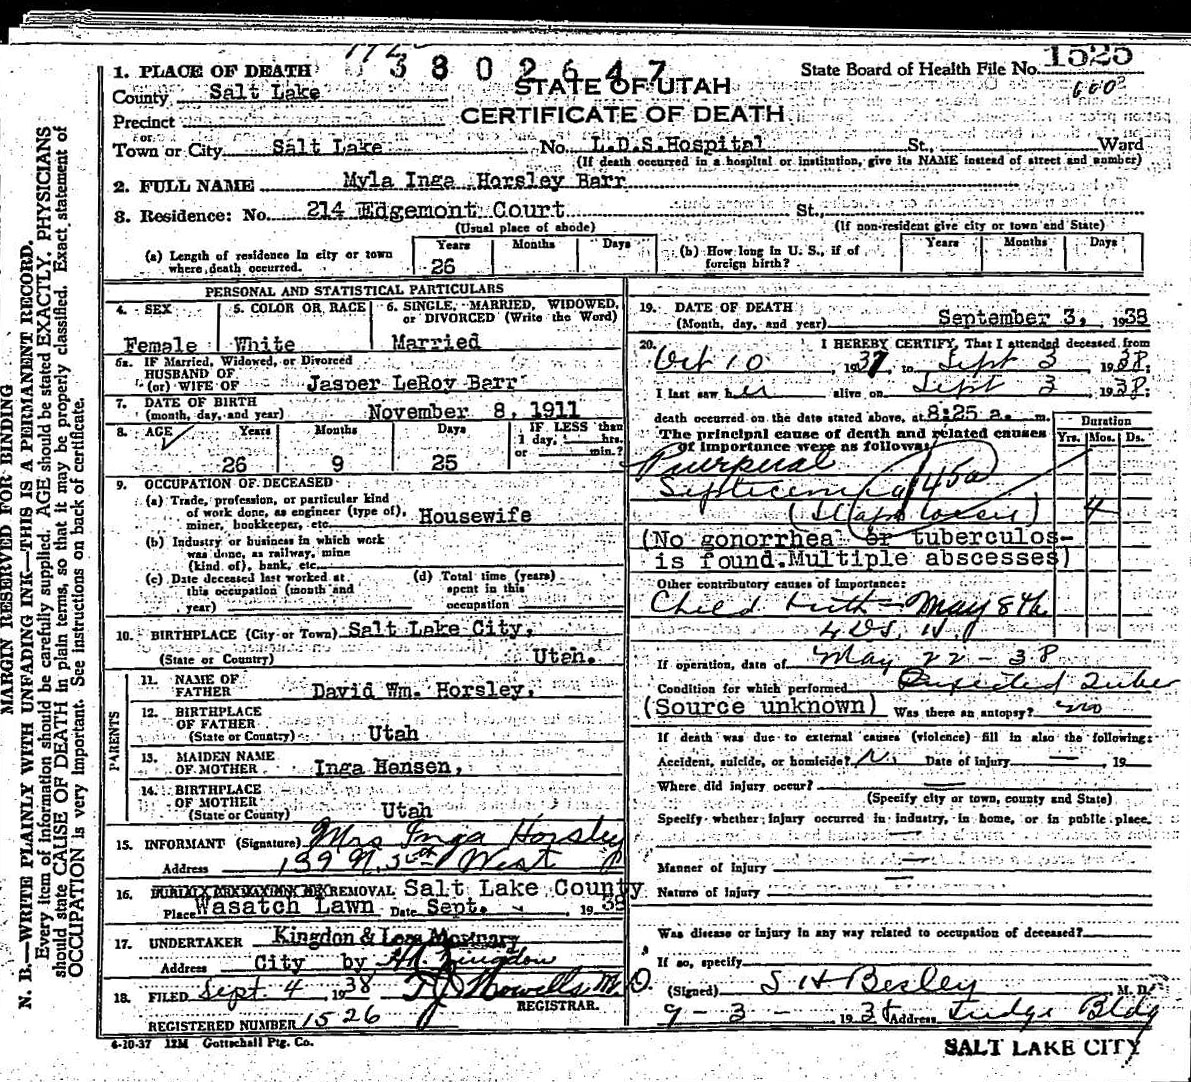 1525
1. PLACE OF DEATH 3802647 State Board of Health File No.
STATE OF UTAH
County Salt Lake
CERTIFICATE OF DEATH
Precinct
or
Town or City Salt Lake No. L.D.S.Hospital St., Ward
(If death occurred in a hospital or institution, give its NAME instead of street and number)
2. FULL NAME Myla Inga Horsley Barr
3. Residence: No. 214 Edgemont Court St.,
(Usual place of abode) (If non-resident give city or town and State)
(a) Length of residence in city or town where death occurred. Years Months Days
26
(b) How long in U. S., if of foreign birth? Years Months Days
PERSONAL AND STATISTICAL PARTICULARS
4. SEX 5. COLOR OR RACE 6. SINGLE, MARRIED, WIDOWED, or DIVORCED (Write the Word)
Female White Married
6a. IF Married, Widowed, or Divorced
HUSBAND OF
(or) WIFE OF Jasper LeRoy Barr
7. DATE OF BIRTH
(month, day, and year) November 8, 1911
8. AGE Years Months Days IF LESS than
1 day, hrs.
or min.?
26 9 25
9. OCCUPATION OF DECEASED
(a) Trade, profession, or particular kind
of work done, as engineer (type of),
miner, bookkeeper, etc. Housewife
(b) Industry or business in which work
was done, as railway, mine
(kind of), bank, etc.
(c) Date deceased last worked at
this occupation (month and
year)
(d) Total time (years)
spent in this
occupation
10. BIRTHPLACE (City or Town) Salt Lake City,
(State or Country) Utah.
PARENTS
11. NAME OF
FATHER David Wm. Horsley,
12. BIRTHPLACE
OF FATHER
(State or Country) Utah
13. MAIDEN NAME
OF MOTHER Inga Hansen,
14. BIRTHPLACE
OF MOTHER
(State or County) Utah
15. INFORMANT (Signature) Mrs Inga Horsley
Address West
16. REMOVAL Salt Lake County
Place Wasatch Lawn Date Sept. 1938
17. UNDERTAKER Kingdon &
Address City by Kingdon
18. FILED Sept 4 1938
REGISTRAR.
REGISTERED NUMBER 1526
19. DATE OF DEATH
(Month, day, and year) September 3, 1938
20. I HEREBY CERTIFY, That I attended deceased from
Oct 10, 1937, to Sept 3 1938;
I last saw her alive on Sept 3 1938;
death occurred on the date stated above, at 8:25 a. m.
The principal cause of death and related causes
of importance were as follows:
Duration
Yrs. Mos. Ds.
Puerperal
Septicemia 145a
4
(No gonorrhea or tuberculos-
is found.Multiple abscesses)
Other contributory causes of importance:
Child birth - May 8th
L D S. H.
If operation, date of May 22 - 38
Condition for which performed
(Source unknown) Was there an autopsy? no
If death was due to external causes (violence) fill in also the following:
Accident, suicide, or homicide? No Date of injury — 19
Where did injury occur? —
(Specify city or town, county and State)
Specify whether injury occurred in industry, in home, or in public place.
Manner of injury
Nature of injury
Was disease or injury in any way related to occupation of deceased?
If so, specify
(Signed) S H Besley M. D.
9 - 3 - 1938 Address Judge Bldg
SALT LAKE CITY
4-10-37 12M Gottschall Ptg. Co.
MARGIN RESERVED FOR BINDING
N. B.—WRITE PLAINLY WITH UNFADING INK—THIS IS A PERMANENT RECORD.
Every item of information should be carefully supplied. AGE should be stated EXACTLY. PHYSICIANS
should state CAUSE OF DEATH in plain terms, so that it may be properly classified. Exact statement of
OCCUPATION is very important. See instructions on back of certificate.